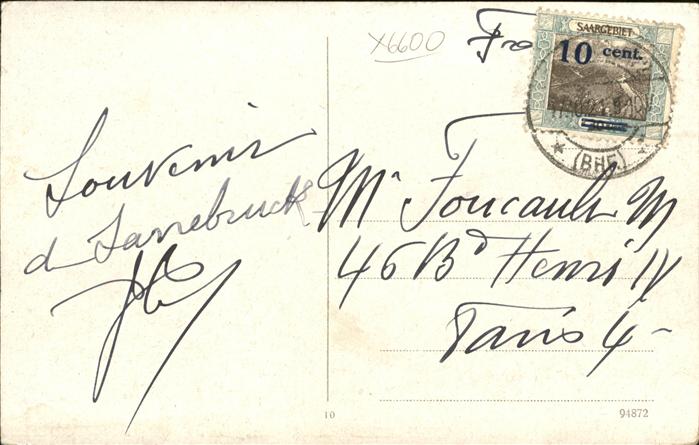 X6600
Fra
SAARGEBIET
10 cent.
(BHF)
Souvenir
de Sarrebruck
Mr Foucault M
46 Bd Henri IV
Paris 4
10
94872